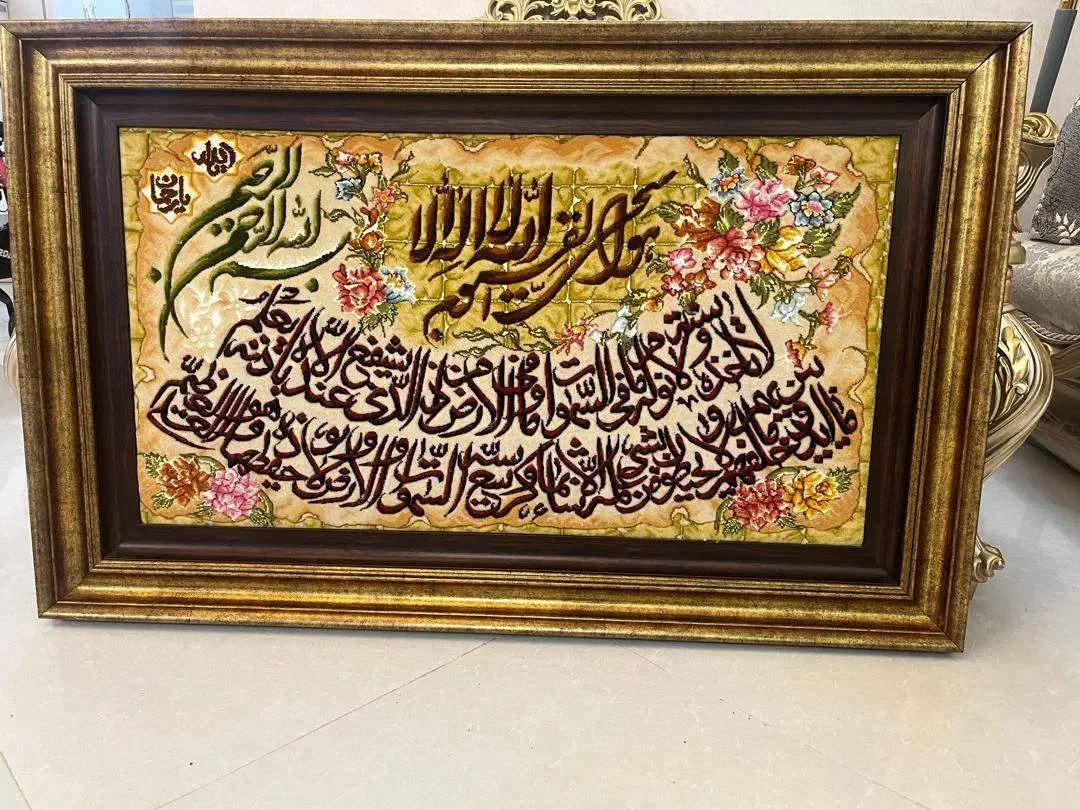 یا رحمان
بسم الله الرحمن الرحيم
الله لا اله الا هو الحي القيوم
لا تأخذه سنة ولا نوم له ما في السموات وما في الارض من ذا الذي يشفع عنده الا باذنه يعلم
ما بين ايديهم وما خلفهم ولا يحيطون بشيء من علمه الا بما شاء وسع كرسيه السموات والارض ولا يؤده حفظهما وهو العلي العظيم